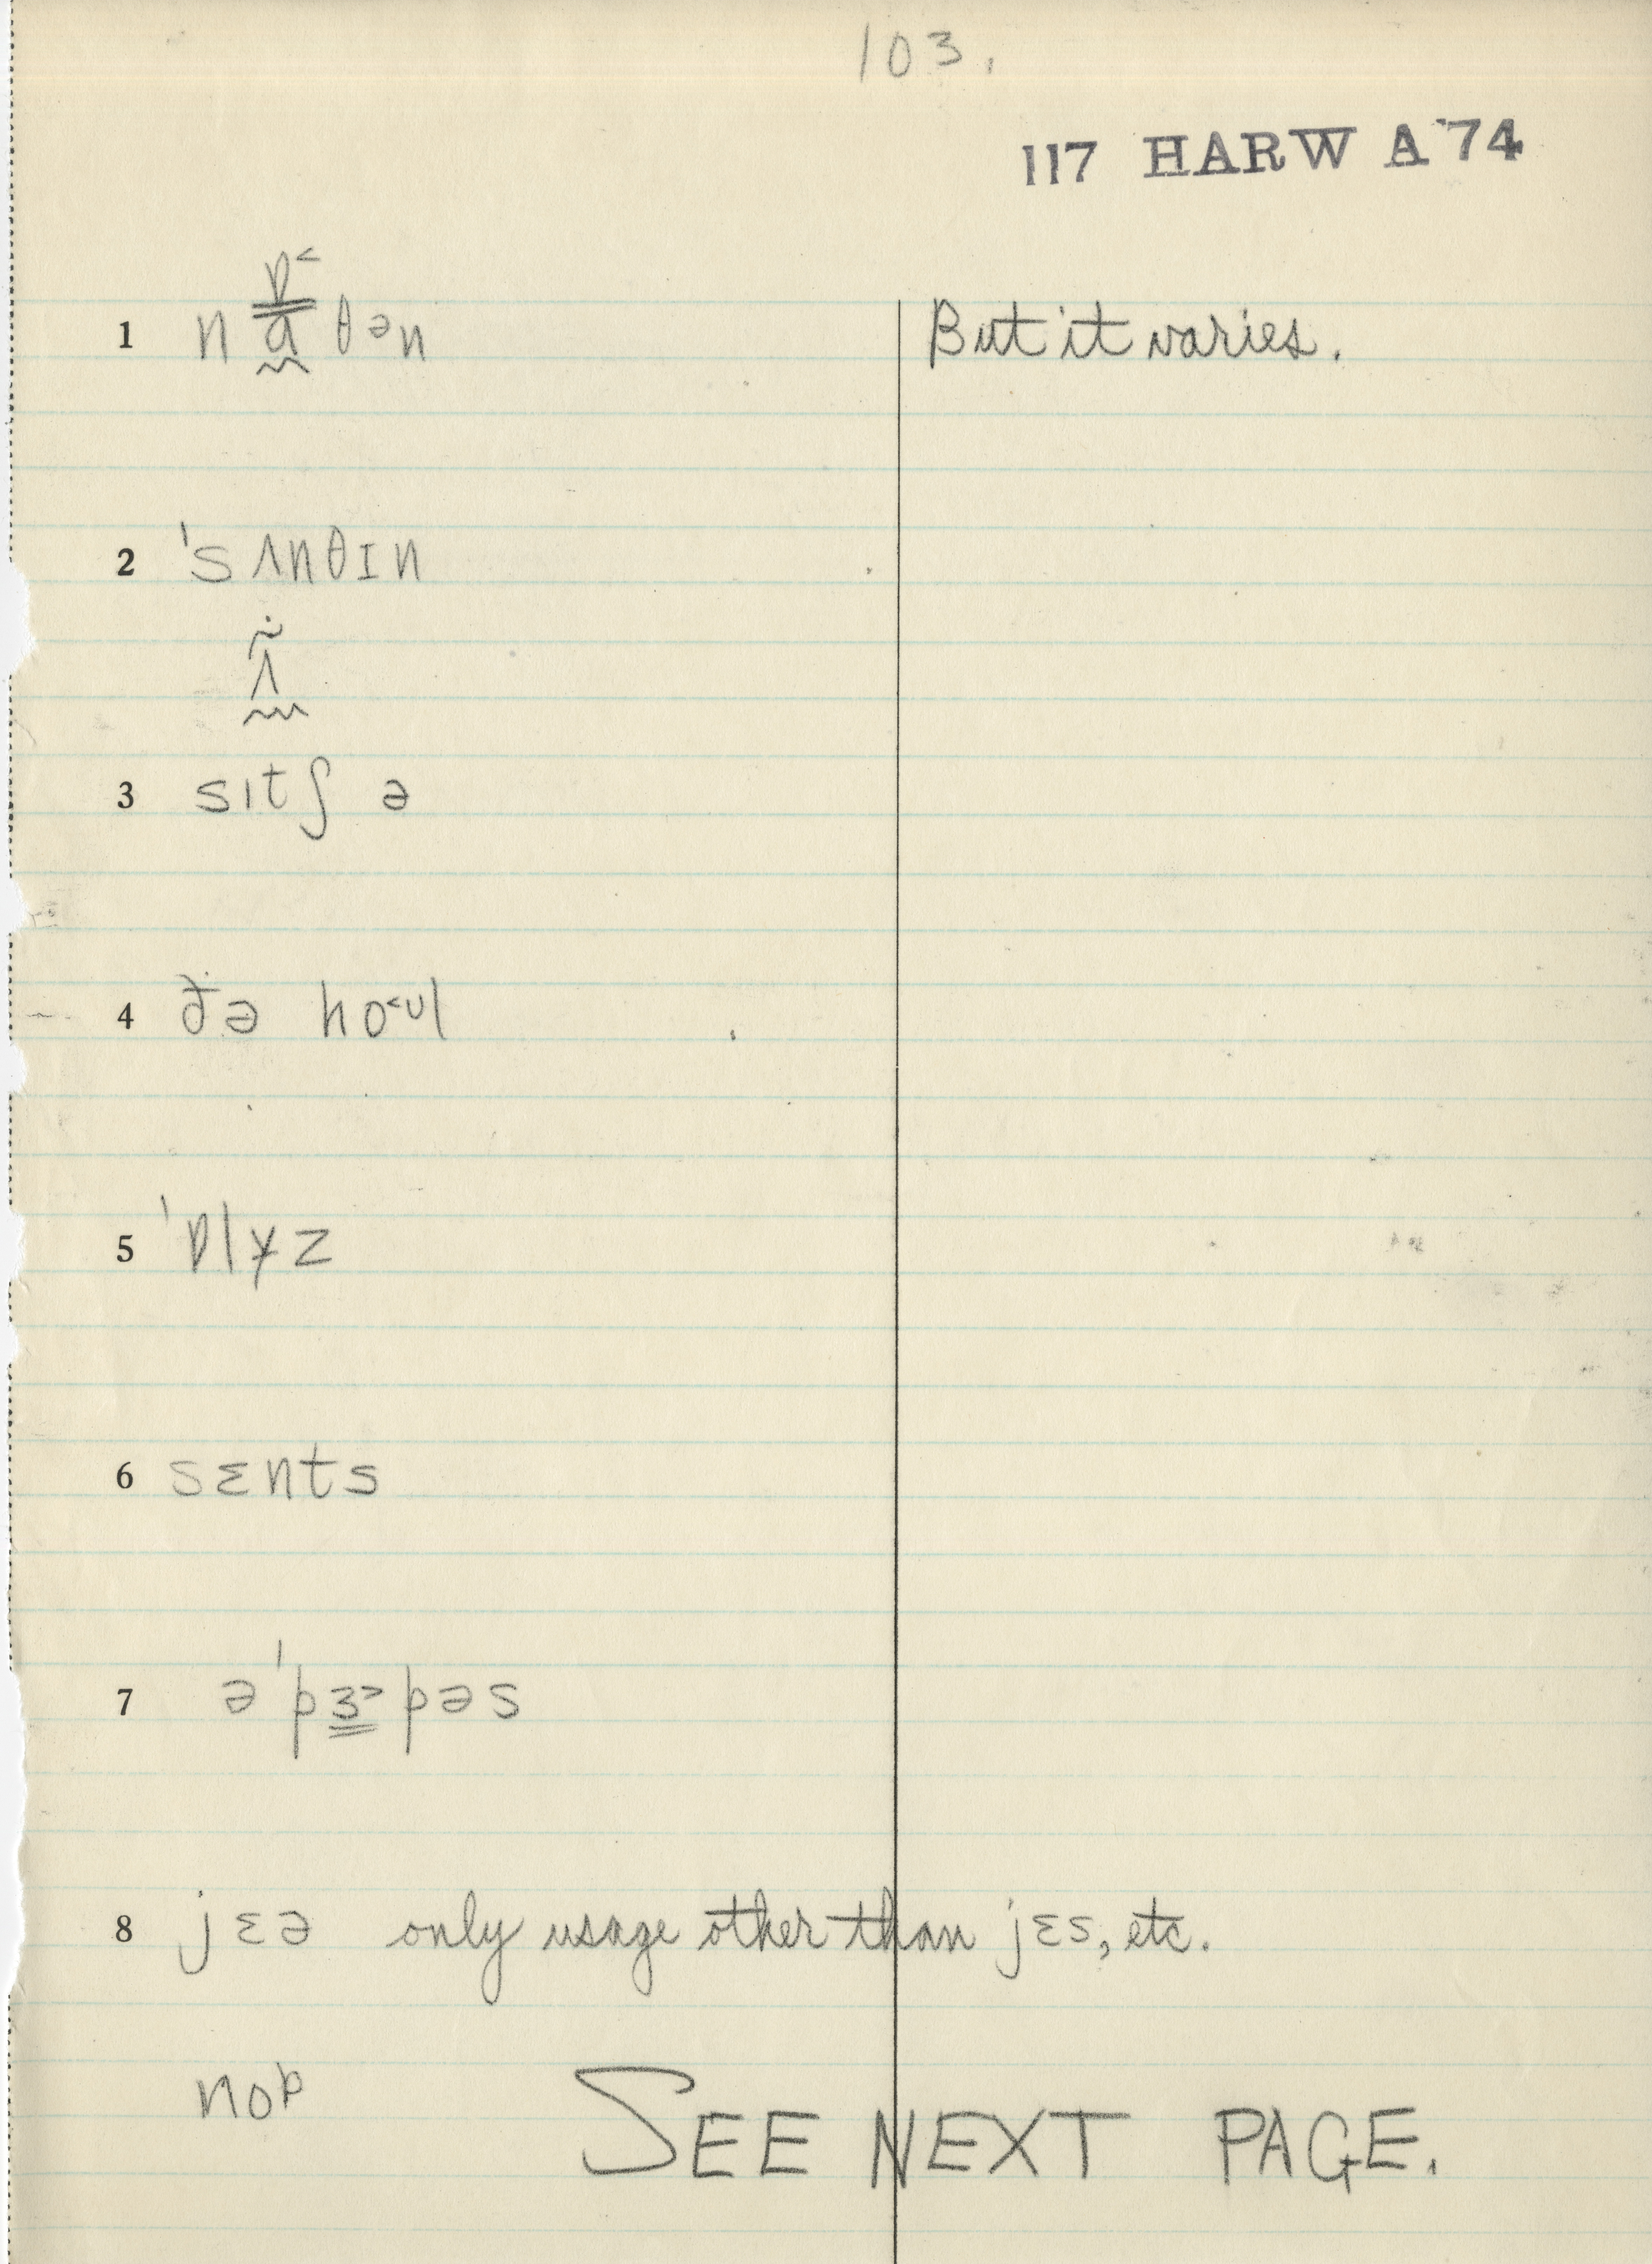 103.
117 HARW A '74
ɒ˂
1 nɑθən But it varies.
2 'sʌnθɪn
ʌ̃
3 sɪtʃ ə
4 ðə ho˂ʊl
5 'ɒlɏz
6 sɛnts
7 ə'pɜ˃pəs
8 jɛə only usage other than jɛs, etc.
noᵖ SEE NEXT PAGE.